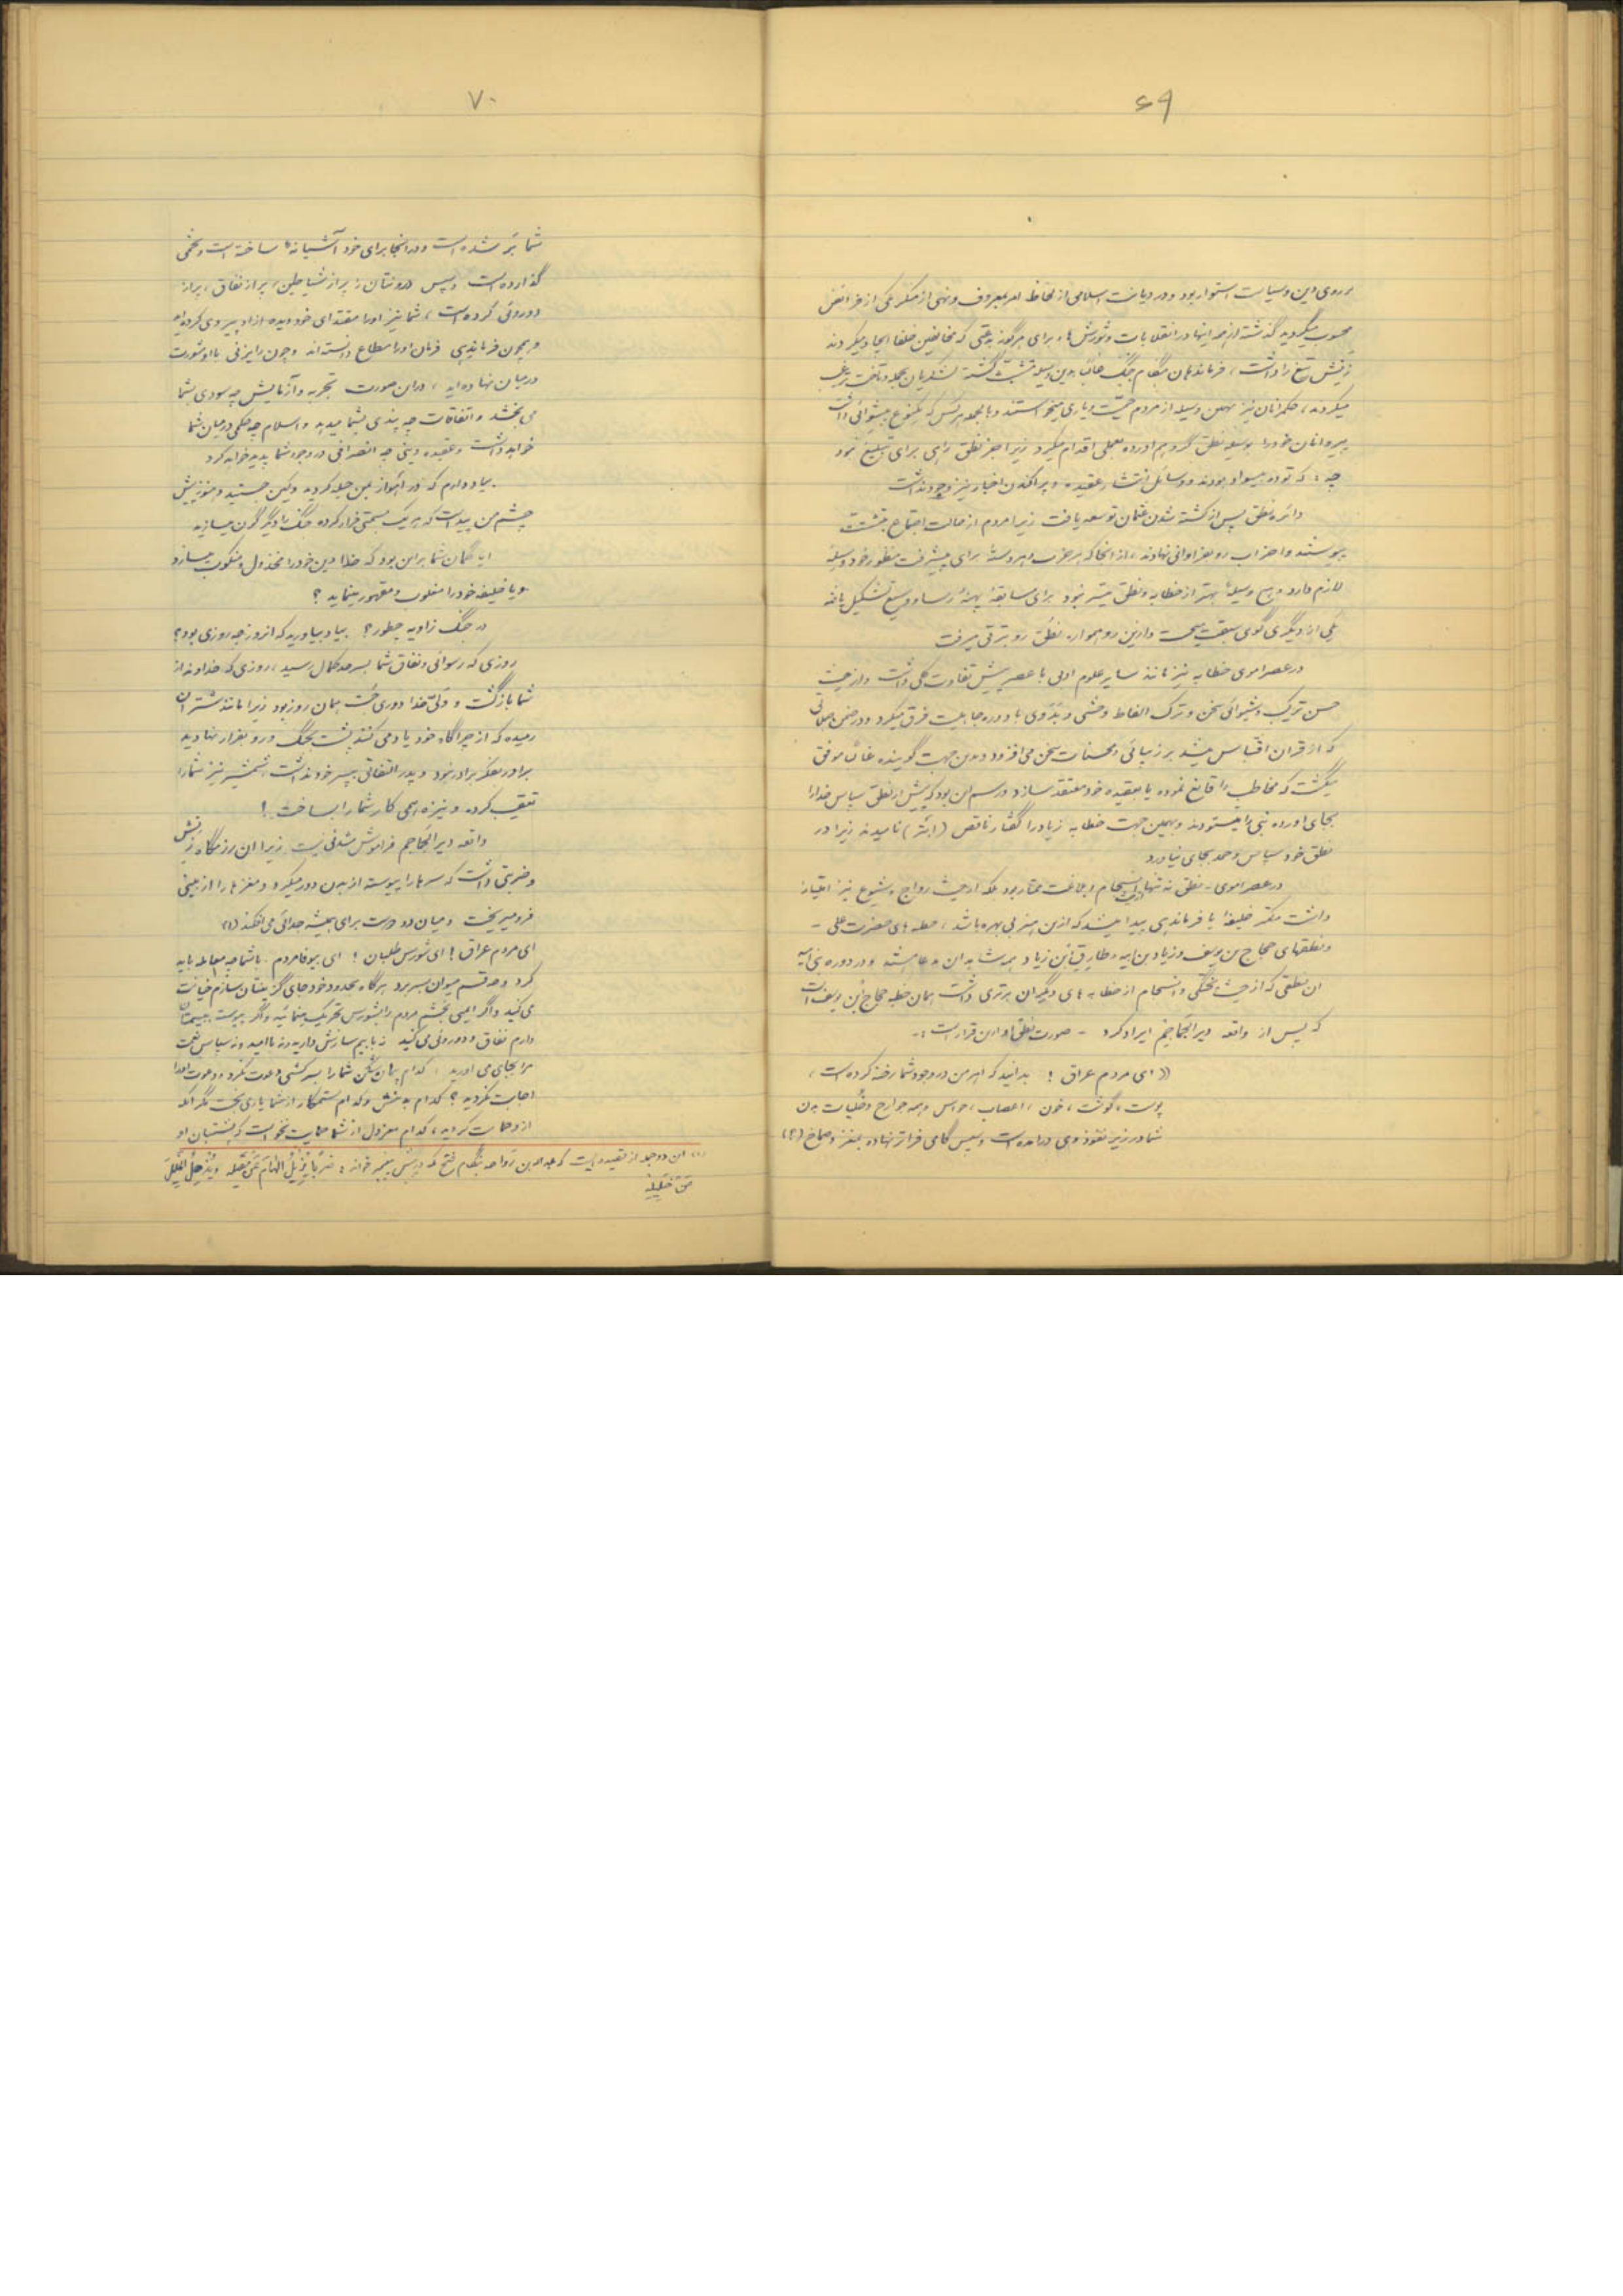 ۶۹
بر روی دین و سیاست استوار بود و در دیانت اسلامی از لحاظ امر بمعروف و نهی از منکر یکی از فرائض
محسوب میگردید گذشته از همه اینها در انقلابات و شورش ها، برای هرگونه بدعتی که مخالفین خلفا ایجاد میکردند
نطقش تیغ را داشت، فرماندهان هنگام جنگ غالبا بدین وسیله متشبث گشته لشکریان بحمله و تاخت ترغیب
میکردند، حکمرانان نیز بهمین وسیله از مردم حمیت و یاری میخواستند و بالجمله هر کس که یکنوع پیشوائی داشت
پیروانان خود را بوسیله نطق گرد هم آورده بعملی اقدام میکرد زیرا جز نطق راهی برای تبلیغ نبود
چه، که توده بیسواد بودند و وسائل انتشار عقیده و پراکندن اخبار نیز وجود نداشت
دائره نطق پس از کشته شدن عثمان توسعه یافت زیرا مردم از حالت اجتماع بتشتت
پیوستند و احزاب رو بفراوانی نهادند، از انجا که هر حزب و هر دسته برای پیشرفت منظور خود وسیله
لازم دارد و هیچ وسیله بهتر از خطابه و نطق میسر نبود برای مسابقه پهنه رسا و وسیع تشکیل یافته
یکی از دیگری گوی سبقت میجست و ازین رو همواره نطق رو بترقی میرفت
در عصر اموی خطابه نیز مانند سایر علوم ادبی با عصر پیش تفاوت کلی داشت و از حیث
حسن ترکیب و شیوائی سخن و ترک الفاظ وحشی و بدوی با دوره جاهلیت فرق میکرد و در ضمن معانی
که از قران اقتباس میشد بر زیبائی و محسنات سخن می افزود و بدین جهت گوینده غالبا موفق
میگشت که مخاطب را قانع نموده یا بعقیده خود معتقد سازد و رسم این بود که پیش از نطق سپاس خدا را
بجای آورده نبی را میستودند و بهمین جهت خطابه زیاد را گفتار ناقص (ابتر) نامیدند زیرا در
نطق خود سپاس و حمد بجای نیاورد
در عصر اموی - نطق نه تنها از حیث انسجام و بلاغت ممتاز بود بلکه از حیث رواج و شیوع نیز امتیاز
داشت مکمتر خلیفه یا فرماندهی پیدا میشد که ازین هنر بی بهره باشد، خطبه های حضرت علی -
و نطقهای حجاج بن یوسف و زیاد بن ابیه و طارق بن زیاد همه شاهد این مدعا هستند و در دوره بنی امیه
ان نطقی که از حیث پختگی و انسجام از خطابه های دیگران برتری داشت همان خطبه حجاج بن یوسف است
که پس از واقعه دیر الجماجم ایراد کرد - صورت نطق او ازین قرار است :-
«ای مردم عراق ! بدانید که اهرمن در وجود شما رخنه کرده است،
پوست، گوشت، خون، اعصاب، حواس و همه جوارح و خلیات بدن
شما در زیر نفوذ وی درامده است و سپس گامی فراتر نهاده بمغز و صماخ (؟)
۷۰
شما بَر شده است و در انجا برای خود آشیانه ها ساخته است و تخمی
گذارده است و سپس درونتان را پر از شیاطین، پر از نفاق، پر از
دوروئی کرده است، شما نیز اورا مقتدای خود دیده از او پیروی کرده اید
و همچون فرماندهی فرمان اورا مطاع دانسته اند و چون رایزنی با او مشورت
در میان نهاده اید، در این صورت تجربه و آزمایش چه سودی بشما
می بخشد و اتفاقات چه پندی بشما میدهد و اسلام چه حکمی در میان شما
خواهد داشت و عقیده دینی چه انصرافی در وجود شما پدید خواهد کرد
بیاد دارم که در اهواز بمن حیله کردید و کین جستید و هنوز پیش
چشم من پیداست که هر یک بسمتی فرار کرده جنگ را دیگرگون میسازید
ایا گمان شما بر این بود که خدا دین خود را مخذول و منکوب میسازد
و یا خلیفه خود را مغلوب و مقهور مینماید ؟
در جنگ زاویه چطور ؟ بیاد بیاورید که انروز چه روزی بود ؟
روزی که رسوائی و نفاق شما بسر حد کمال رسید، روزی که خداوند از
شما بازگشت و ولی خدا دوری جست همان روز بود زیرا مانند شتران
رمیده که از چراگاه خود یاد می کنند پشت بجنگ و رو بفرار نهادید
برادر بفکر برادر نبود و پدر التفاتی بپسر خود نداشت، شمشیر نیز شما را
تعقیب کرده و نیزه همی کار شما را بساخت !
واقعه دیر الجماجم فراموش شدنی نیست زیرا ان رزمگاه زنش
و ضربتی داشت که سرها را پیوسته از بدن دور میکرد و مغزها را از بینی
فرو میریخت و میان دو دوست برای همیشه جدائی می افکند (۱)
ای مردم عراق ! ای شورش طلبان ! ای بیوفا مردم با شما چه معامله باید
کرد و چه قسم میوان بسر برد هرگاه بحدود خود جای گزینتان سازم خیانت
می کنید و اگر ایمنی بخشم مردم را بشورش تحریک مینمائید و اگر پیوست ببیمتان
دارم نفاق و دوروئی می کنید نه با بیم سازش دارید و نه با امید و نه سپاس نعمت
مرا بجای می اورید، کدام پیمان شکن شما را بسرکشی دعوت نکرد و دعوت اورا
اجابت نکردید ؟ کدام بد منش و کدام ستمکار از شما یاری نجست مگر انکه
از او حمایت کردید، کدام معزول از شما حمایت نخواست که پشتبان او
(۱) این دو جمله از قصیده ایست که عبدالله بن رواحه هنگام فتح مکه در پیش پیغمبر خوانده: ضَرْبًا یُزیلُ الهَامَ عَنْ مَقیله وَیُذْهِلُ الخَلیلَ
عَنْ خَلیلِهِ